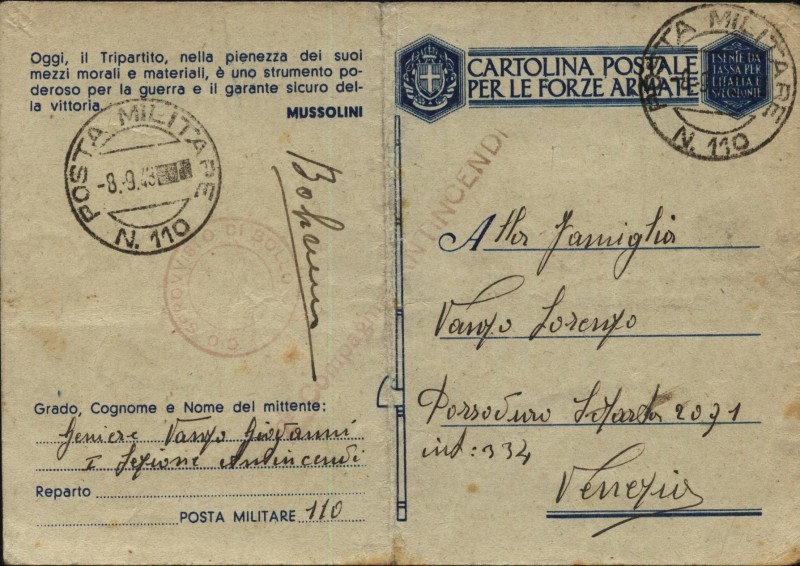 Oggi, il Tripartito, nella pienezza dei suoi
mezzi morali e materiali, è uno strumento po-
deroso per la guerra e il garante sicuro del-
la vittoria.
MUSSOLINI
POSTA MILITARE
-8.-9.43
N. 110
SPROVVISTO DI BOLLO
Grado, Cognome e Nome del mittente:
Geniere Vanzo Giovanni
I Sezione Antincendi
Reparto
POSTA MILITARE 110
CARTOLINA POSTALE
PER LE FORZE ARMATE
ESENTE DA
TASSA PER
L'ITALIA
E COLONIE
POSTA MILITARE
N. 110
Compagnia ANTINCENDI
Alla Famiglia
Vanzo Lorenzo
Dorsoduro 2091
int: 334
Venezia